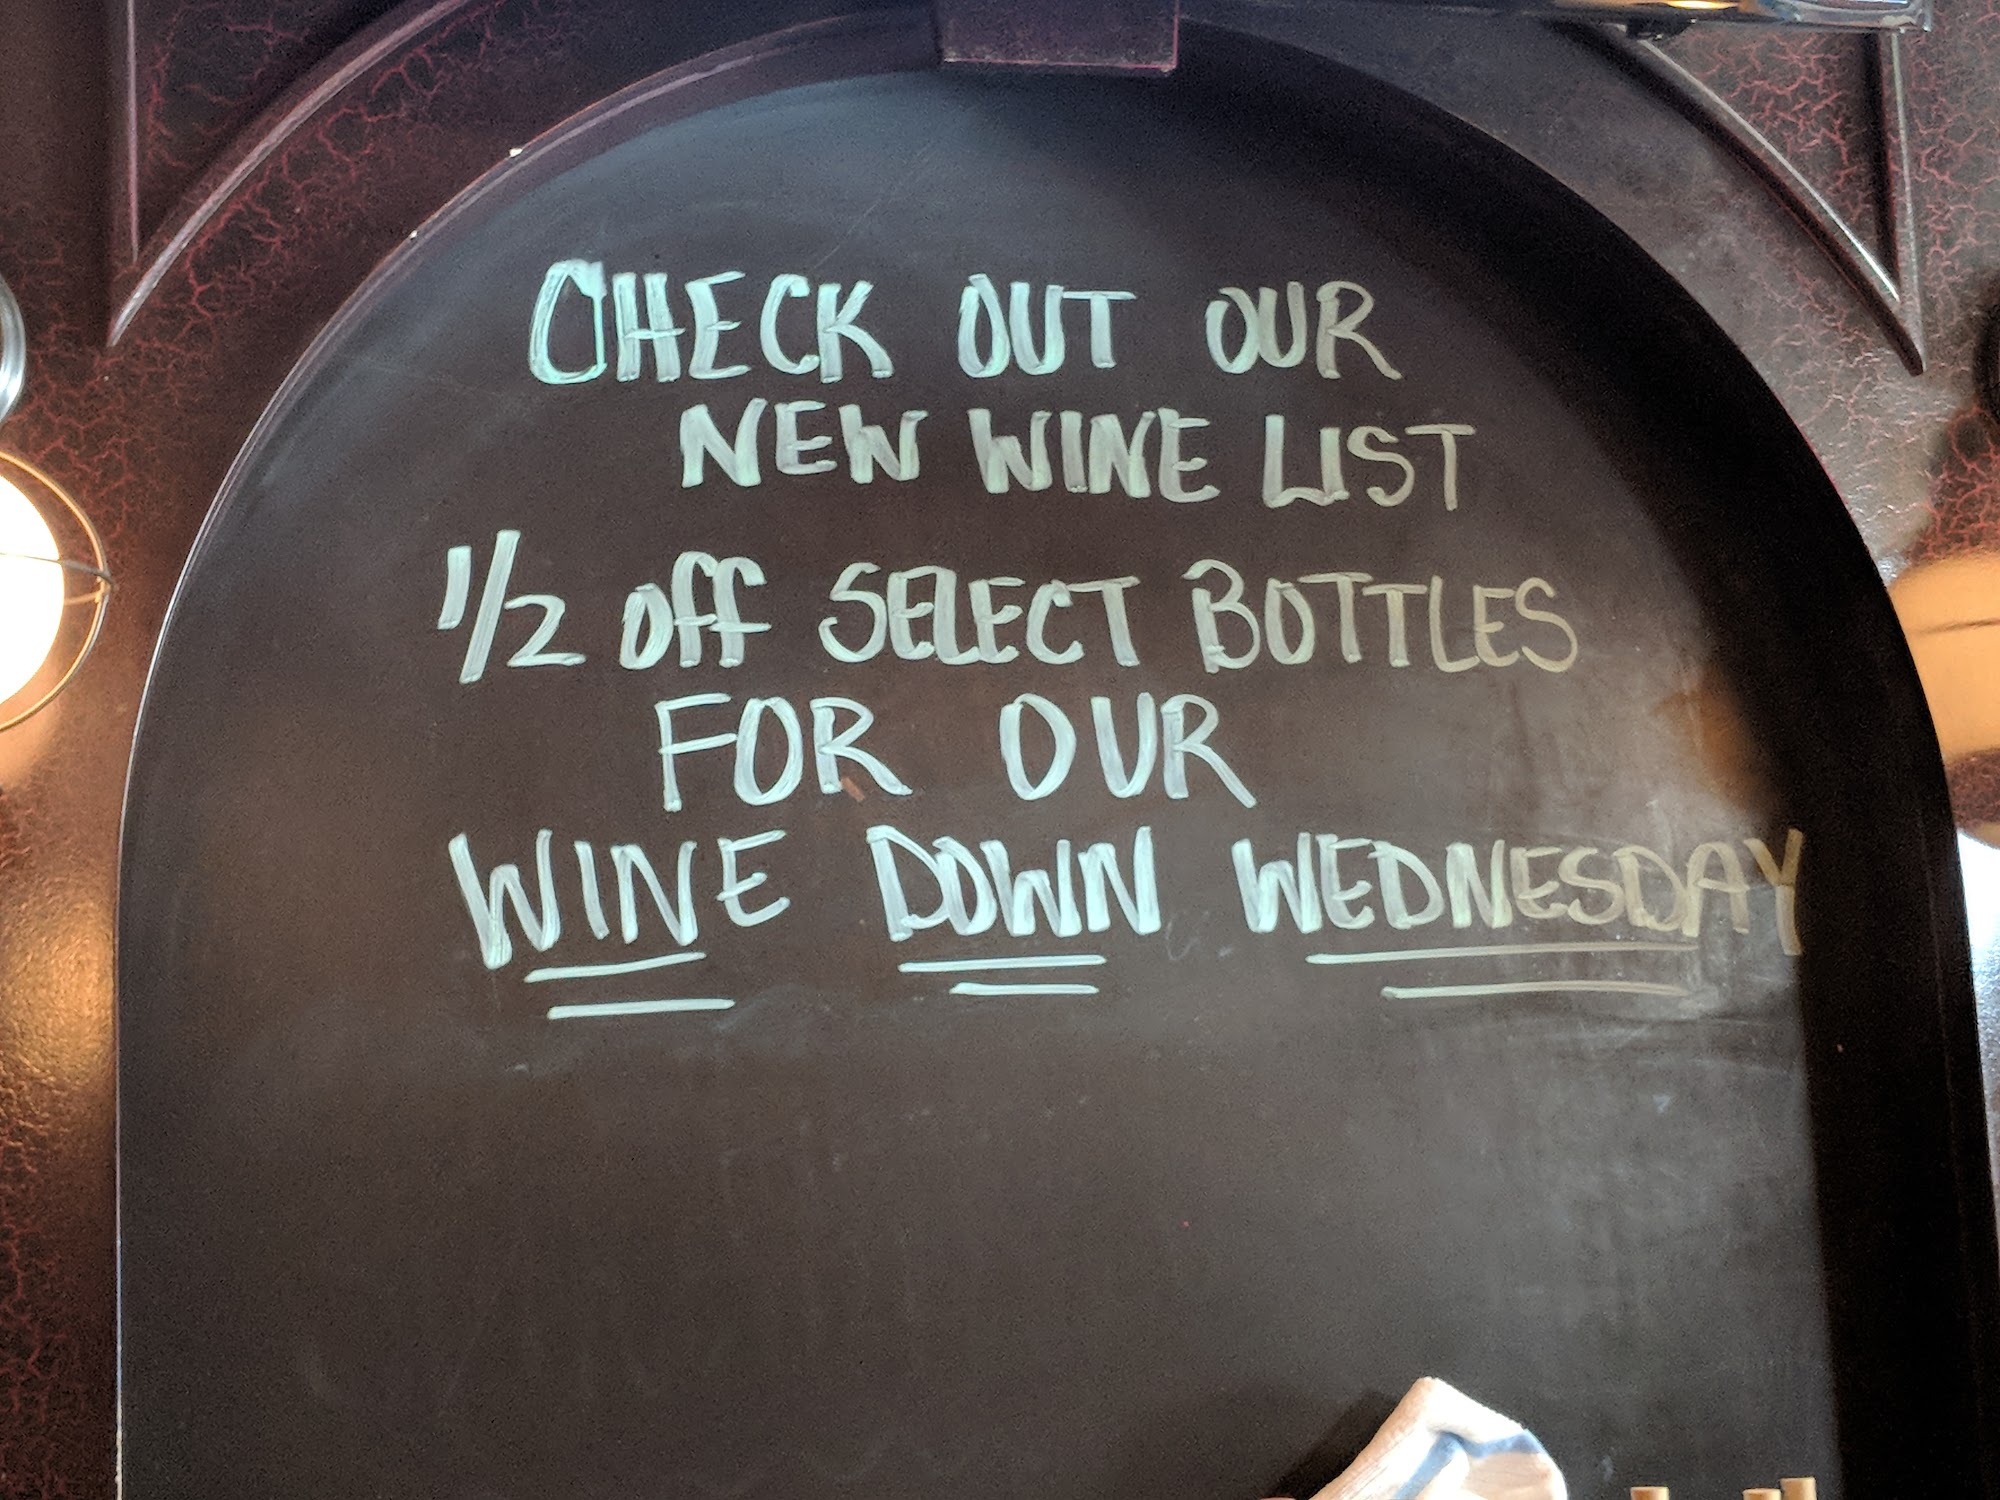 CHECK OUT OUR
NEW WINE LIST
1/2 off SELECT BOTTLES
FOR OUR
WINE DOWN WEDNESDAY